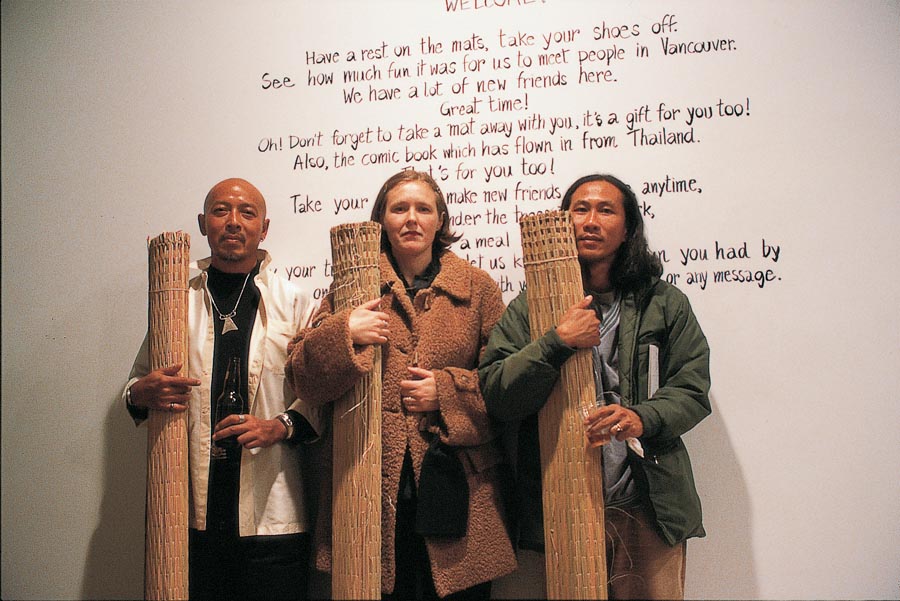 WELCOME!
Have a rest on the mats, take your shoes off.
See how much fun it was for us to meet people in Vancouver.
We have a lot of new friends here.
Great time!
Oh! Don't forget to take a mat away with you, it's a gift for you too!
Also, the comic book which has flown in from Thailand.
That's for you too!
Take your make new friends anytime,
under the trees
a meal you had by
your let us
or any message.